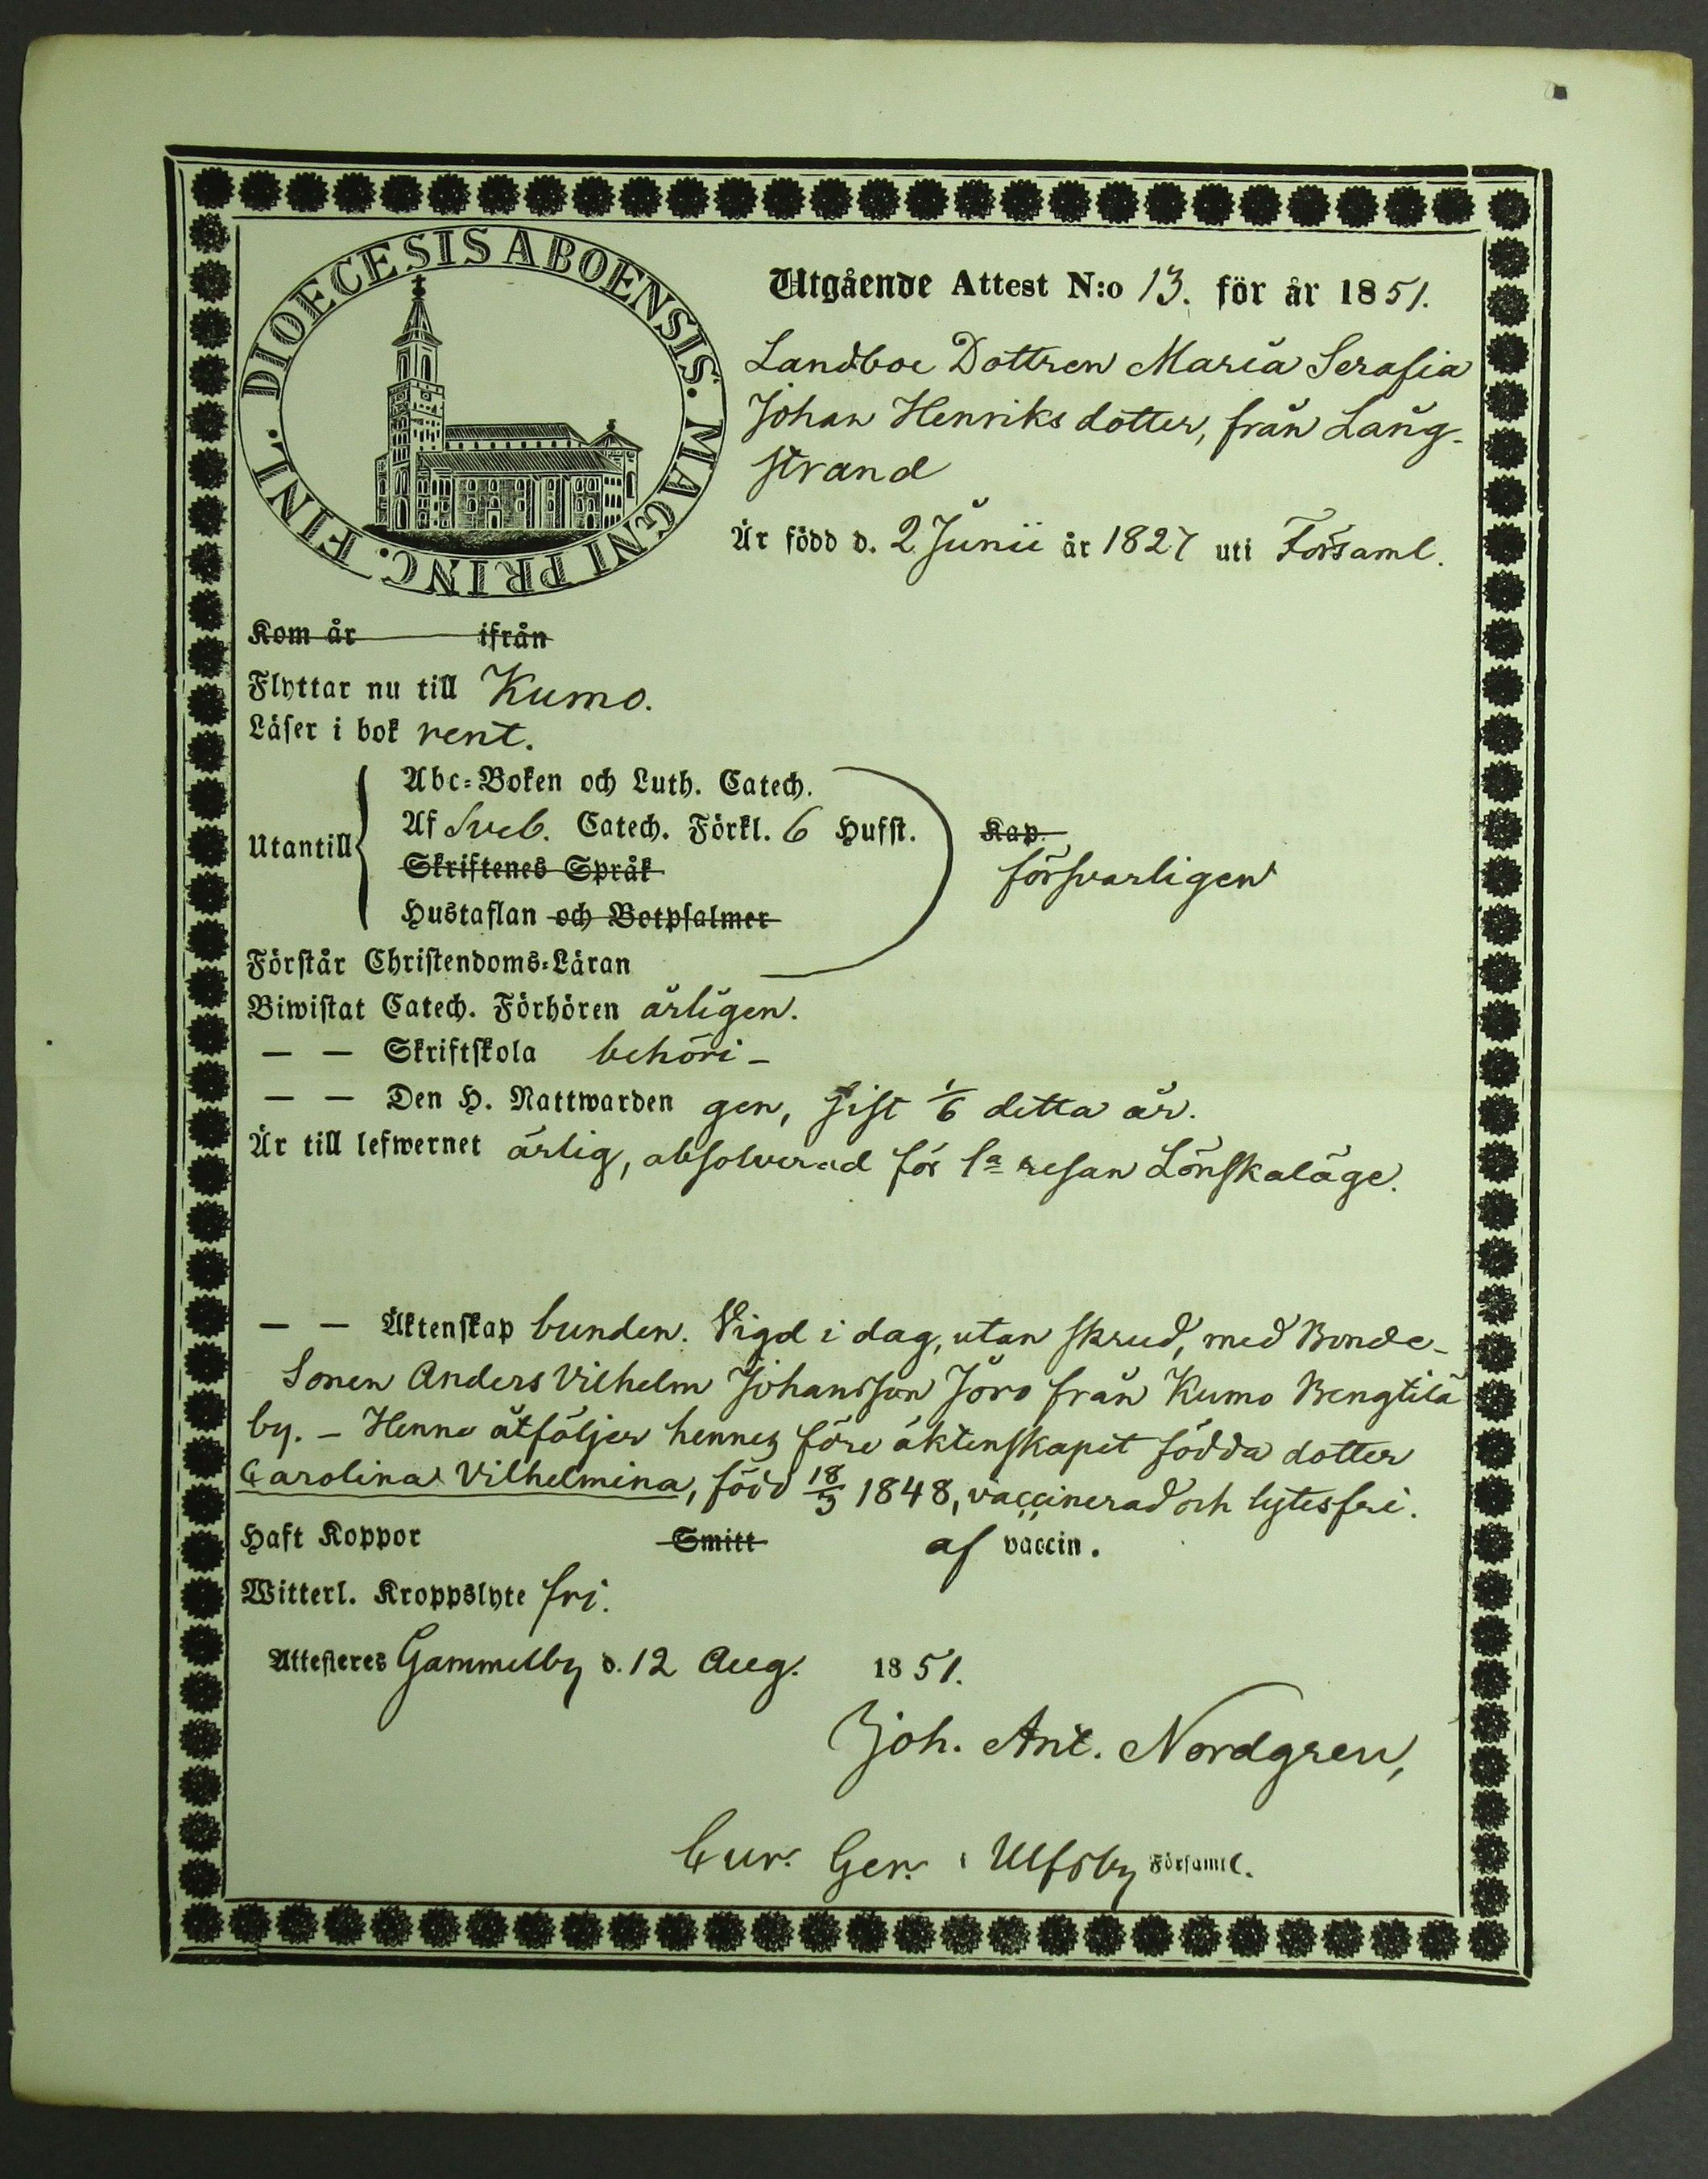 DIOECESIS ABOENSIS. MAGNI PRINC. FINL.
Utgående Attest N:o 13. för år 1851.
Landboe Dottren Maria Serafia
Johan Henriks dotter, från Lång-
strand
Är född d. 2 Junii år 1827 uti Församl.
Kom år ifrån
Flyttar nu till Kumo.
Läser i bok rent.
Utantill
Abc-Boken och Luth. Catech.
Af Sveb. Catech. Förkl. 6 Hufst. Kap.
Skriftenes Språk
försvarligen
Hustaflan och Botpsalmer
Förstår Christendoms-Läran
Biwistat Catech. Förhören årligen.
— — Skriftskola behöri-
— — Den H. Nattwarden gen, sist 1/6 detta år.
Är till lefwernet ärlig, absolverad för 1a resan Lönskaläge.
— — Äktenskap bunden. Vigd i dag, utan skrud, med Bonde-
Sonen Anders Vilhelm Johansson Jöro från Kumo Bengtilä
by. – Henne åtföljer hennes före äktenskapet födda dotter
Carolina Vilhelmina, född 18/3 1848, vaccinerad och lytesfri.
Haft Koppor Smitt af vaccin.
Witterl. Kroppslyte fri.
Attesteres Gammelby d. 12 Aug. 1851.
Joh. Ant. Nordgren,
Cur. Ger. i Ulfsby Församl.